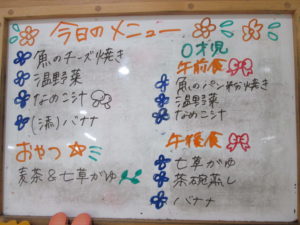 今日のメニュー
魚のチーズ焼き
温野菜
なめこ汁
(流)バナナ
おやつ
麦茶&七草がゆ
0才児
午前食
魚のパン粉焼き
温野菜
なめこ汁
午後食
七草がゆ
茶碗蒸し
バナナ